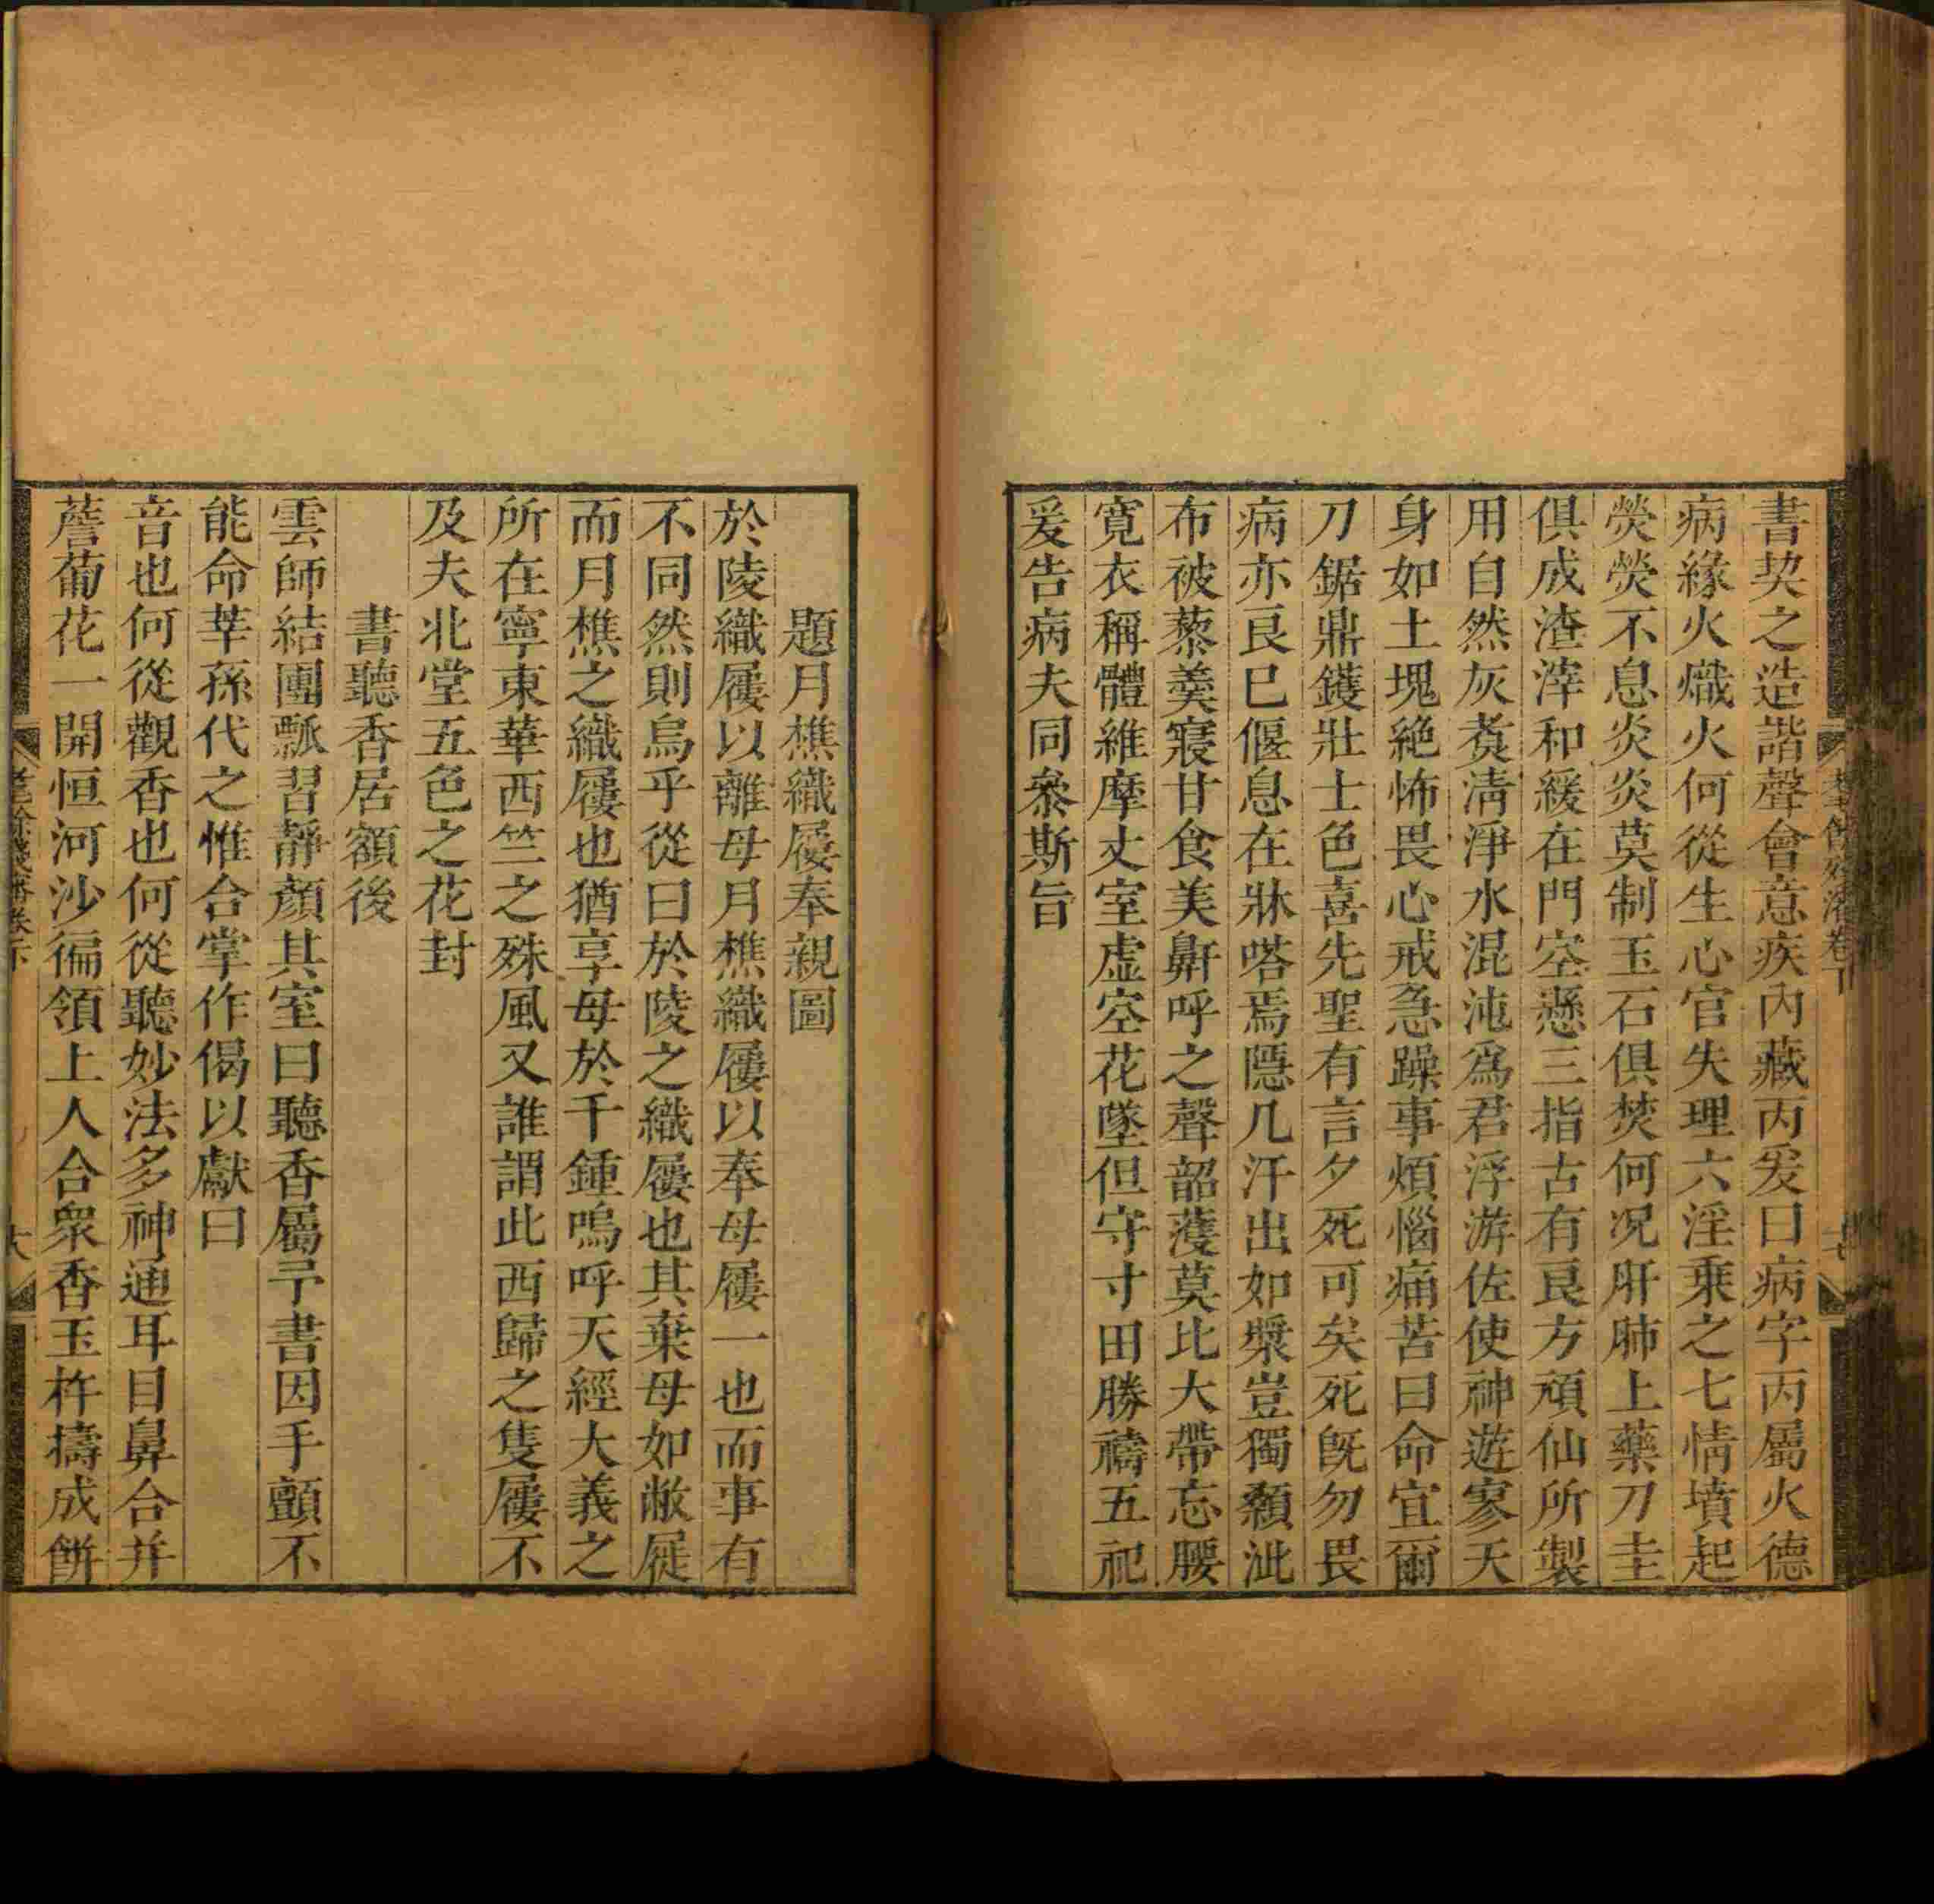 書契之造諧聲會意疾內藏丙爰曰病字丙屬火德
病緣火熾火何從生心官失理六淫乘之七情墳起
熒熒不息炎炎莫制玉石俱焚何況肝肺上藥刀圭
俱成渣滓和緩在門空懸三指古有良方頑仙所製
用自然灰煑淸淨水混沌爲君浮游佐使神遊寥天
身如土塊絶怖畏心戒急躁事煩惱痛苦曰命宜爾
刀鋸鼎鑊壯士色喜先聖有言夕死可矣死旣勿畏
病亦良已偃息在牀嗒焉隱几汗出如漿豈獨顙泚
布被藜羹寢甘食美鼾呼之聲韶濩莫比大帶忘腰
寬衣稱體維摩丈室虛空花墜但守寸田勝禱五祀
爰告病夫同叅斯旨
題月樵織屨奉親圖
於陵織屨以離母月樵織屨以奉母屨一也而事有
不同然則烏乎從曰於陵之織屨也其棄母如敝屣
而月樵之織屨也猶享母於千鍾嗚呼天經大義之
所在寧東華西竺之殊風又誰謂此西歸之隻屨不
及夫北堂五色之花封
書聽香居額後
雲師結團瓢習靜顏其室曰聽香屬予書因手顫不
能命莘孫代之惟合掌作偈以獻曰
音也何從觀香也何從聽妙法多神通耳目鼻合并
薝蔔花一開恒河沙徧領上人合衆香玉杵擣成餅
卷下
大